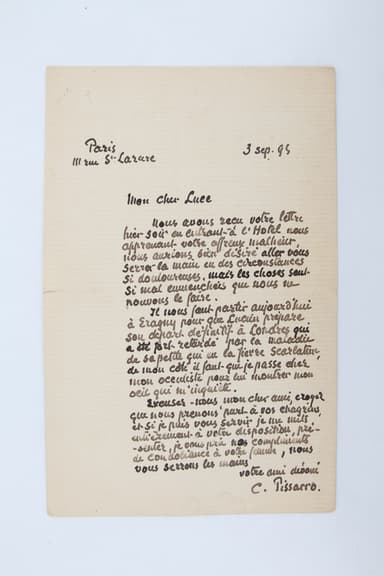 Paris
111 rue St Lazare
3 sep. 95
Mon cher Luce
Nous avons reçu votre lettre
hier soir en entrant à l'Hotel nous
apprenant votre affreux malheur,
nous aurions bien désiré aller vous
serrer la main en des circonstances
si douloureuses, mais les choses sont
si mal emmenchées que nous ne
pouvons le faire.
Il nous faut partir aujourd'hui
à Eragny pour que Lucien prépare
son départ définitif à Londres qui
a été fort retardé par la maladie
de sa petite qui a la fievre Scarlatine,
de mon côté il faut que je passe chez
mon occuliste pour lui montrer mon
œil qui m'inquiète.
Excusez-nous mon cher ami, croyez
que nous prenons part à vos chagrins,
et si je puis vous servir je me mets
entièrement à votre disposition, pré-
-senter, je vous prie nos compliments
de condoléance à votre famille, nous
vous serrons les mains
votre ami dévoué
C. Pissarro.